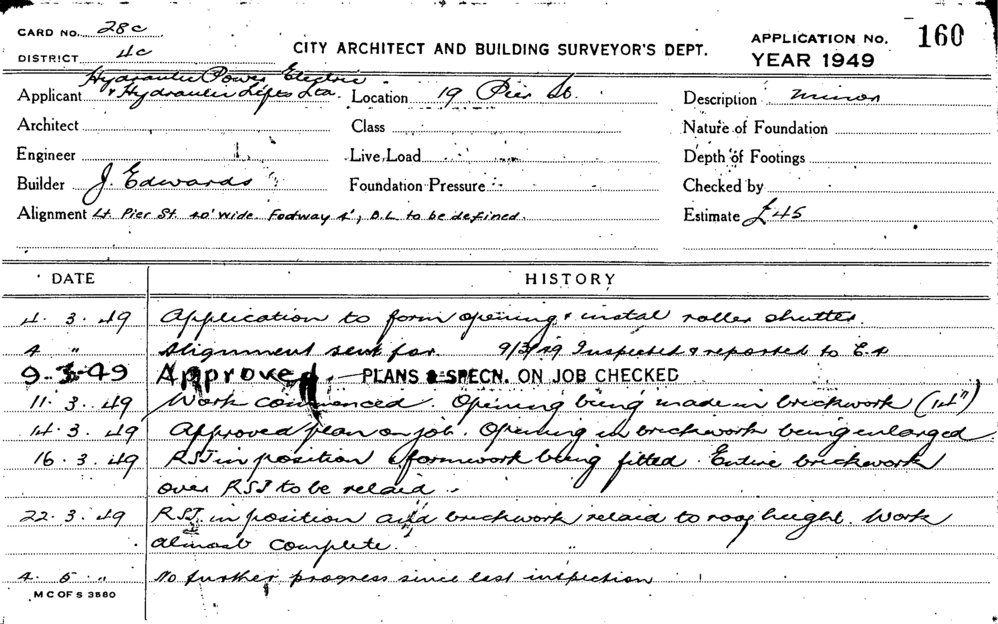 CARD NO. 28c
DISTRICT 4c
CITY ARCHITECT AND BUILDING SURVEYOR'S DEPT.
APPLICATION NO. 160
YEAR 1949
Hydraulic Power Electric
Applicant & Hydraulic Lifts Ltd. Location 19 Pier St. Description minor
Architect Class Nature of Foundation
Engineer Live Load Depth of Footings
Builder J. Edwards Foundation Pressure Checked by
Alignment Lt. Pier St. 40' wide. Footway 4', B.L to be defined. Estimate £45
DATE HISTORY
4. 3. 49 Application to form opening & instal roller shutter.
4 " Alignment sent for. 9/3/49 Inspected & reported to
9-3-49 Approved. PLANS & SPECN. ON JOB CHECKED
11. 3. 49 Work commenced. Opening being made in brickwork (14")
14. 3. 49 Approved plan on job. Opening in brickwork being enlarged
16. 3. 49 RSJ in position & formwork being fitted. Entire brickwork
over RSJ to be relaid.
22. 3. 49 RSJ. in position and brickwork relaid to roof height. Work
almost complete.
4. 5 " No further progress since last inspection
M C OF S 3580